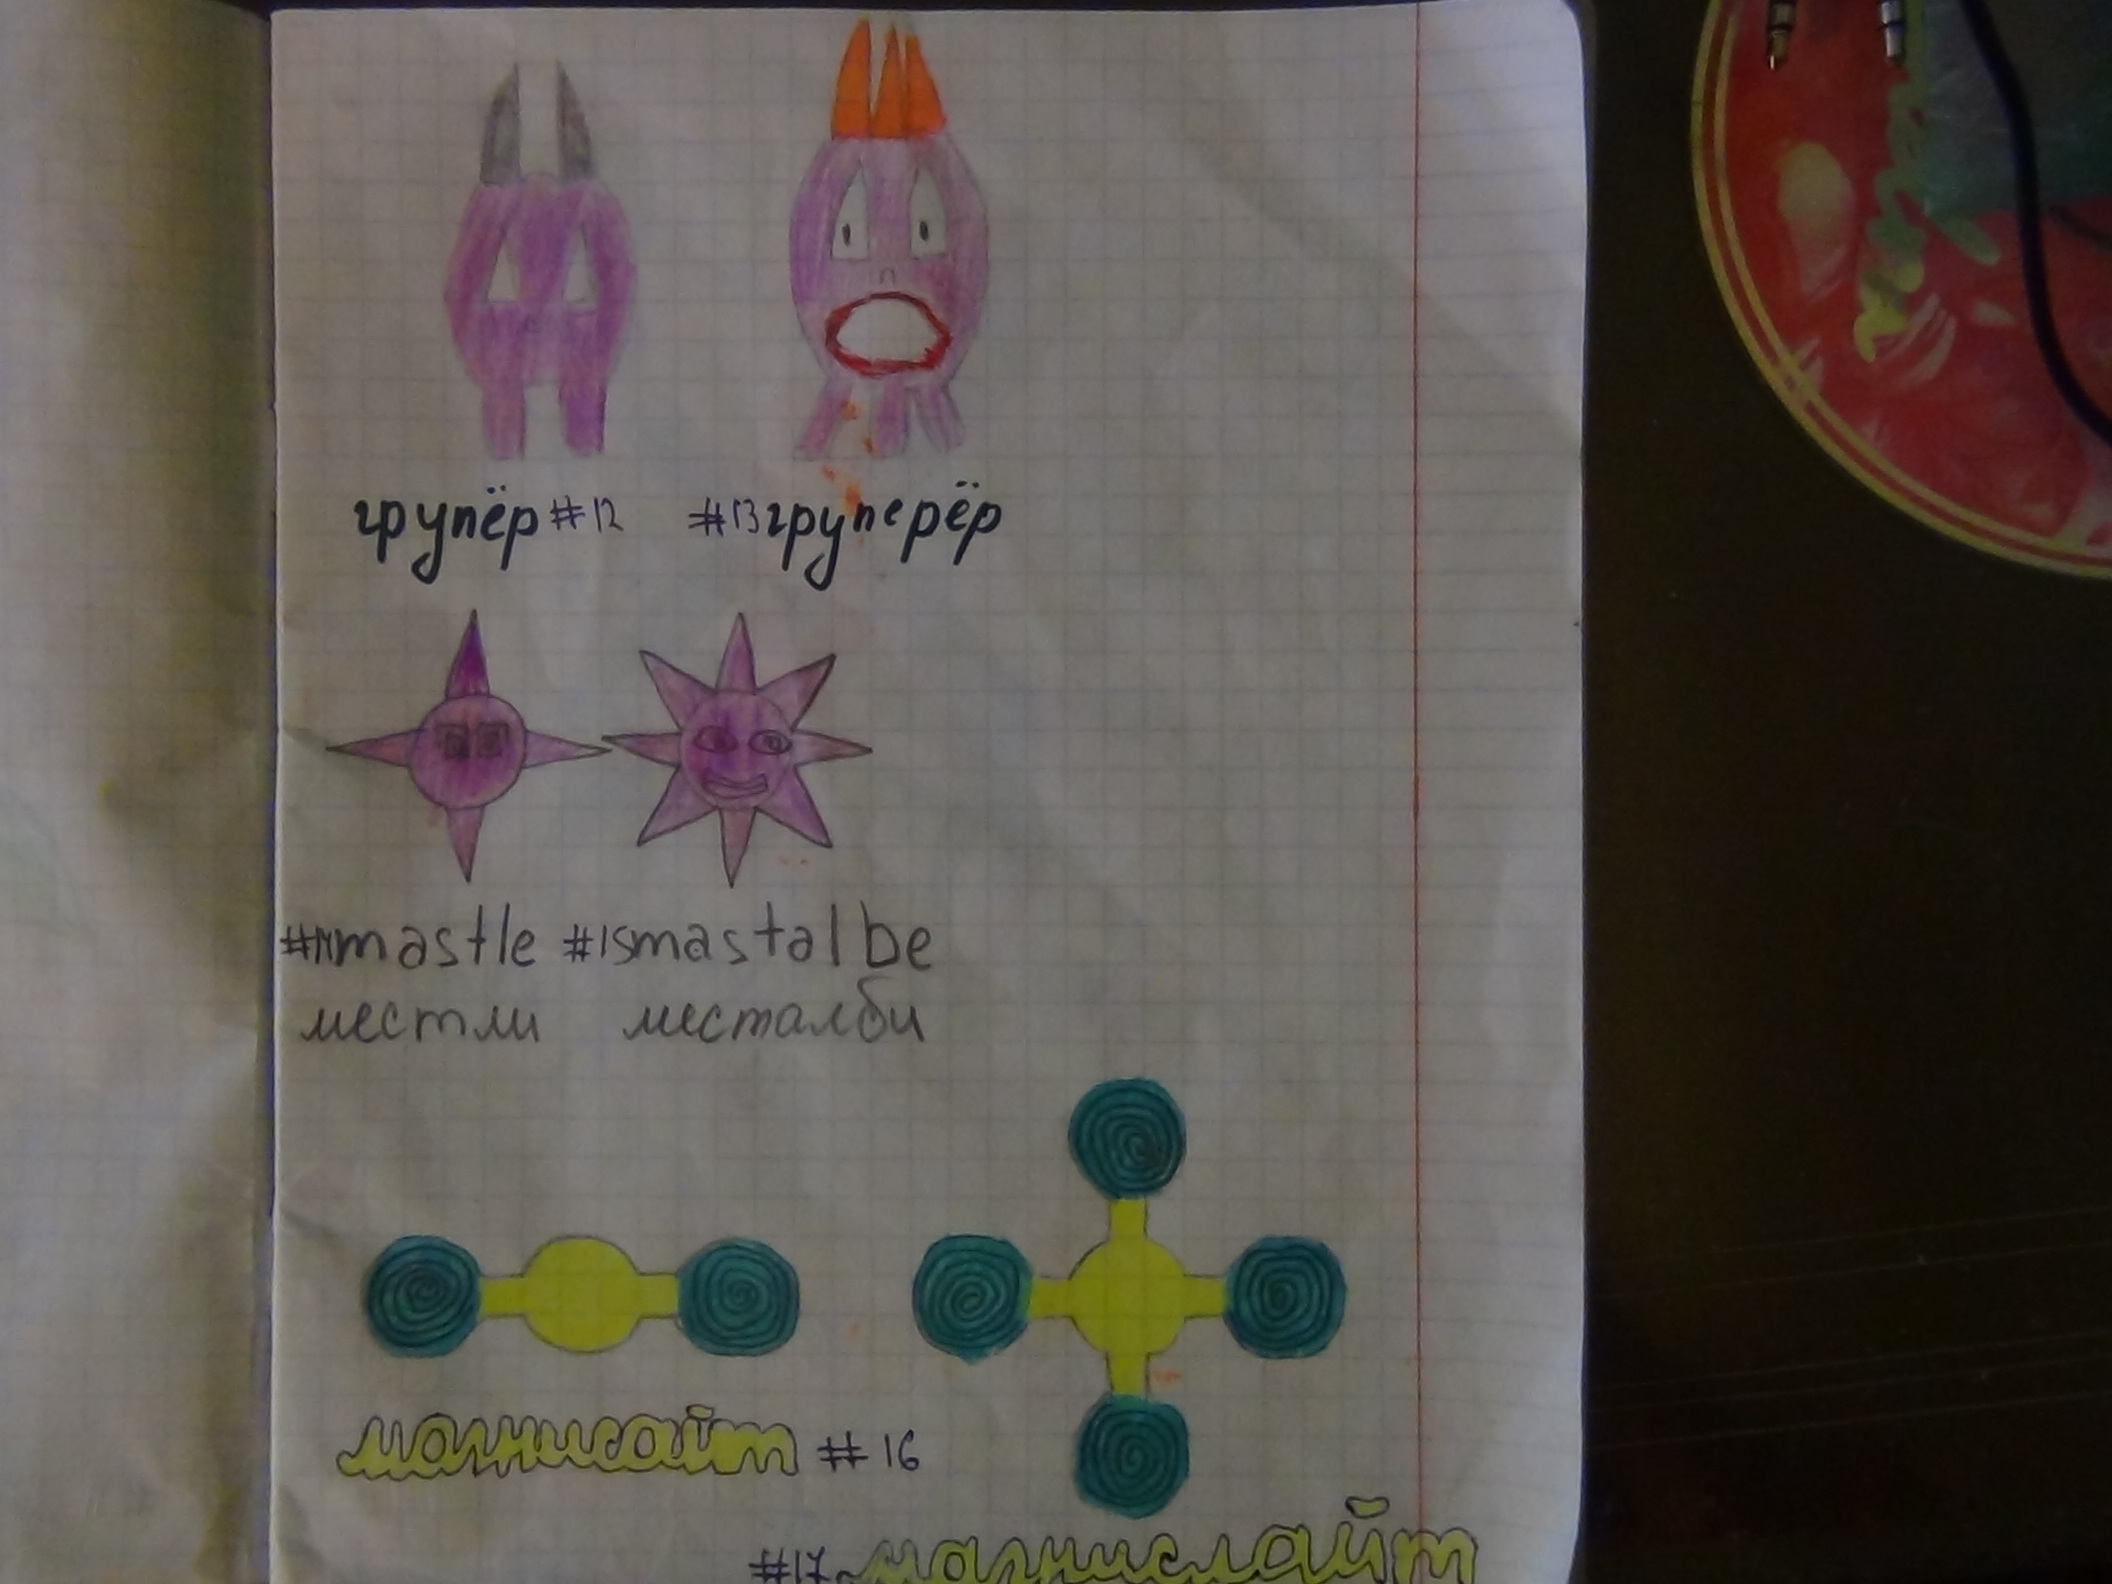 групёр #12 #13 груперёр
#14 mastle #15 mastalbe
местли месталби
магнисайт #16
#17 магнислайт